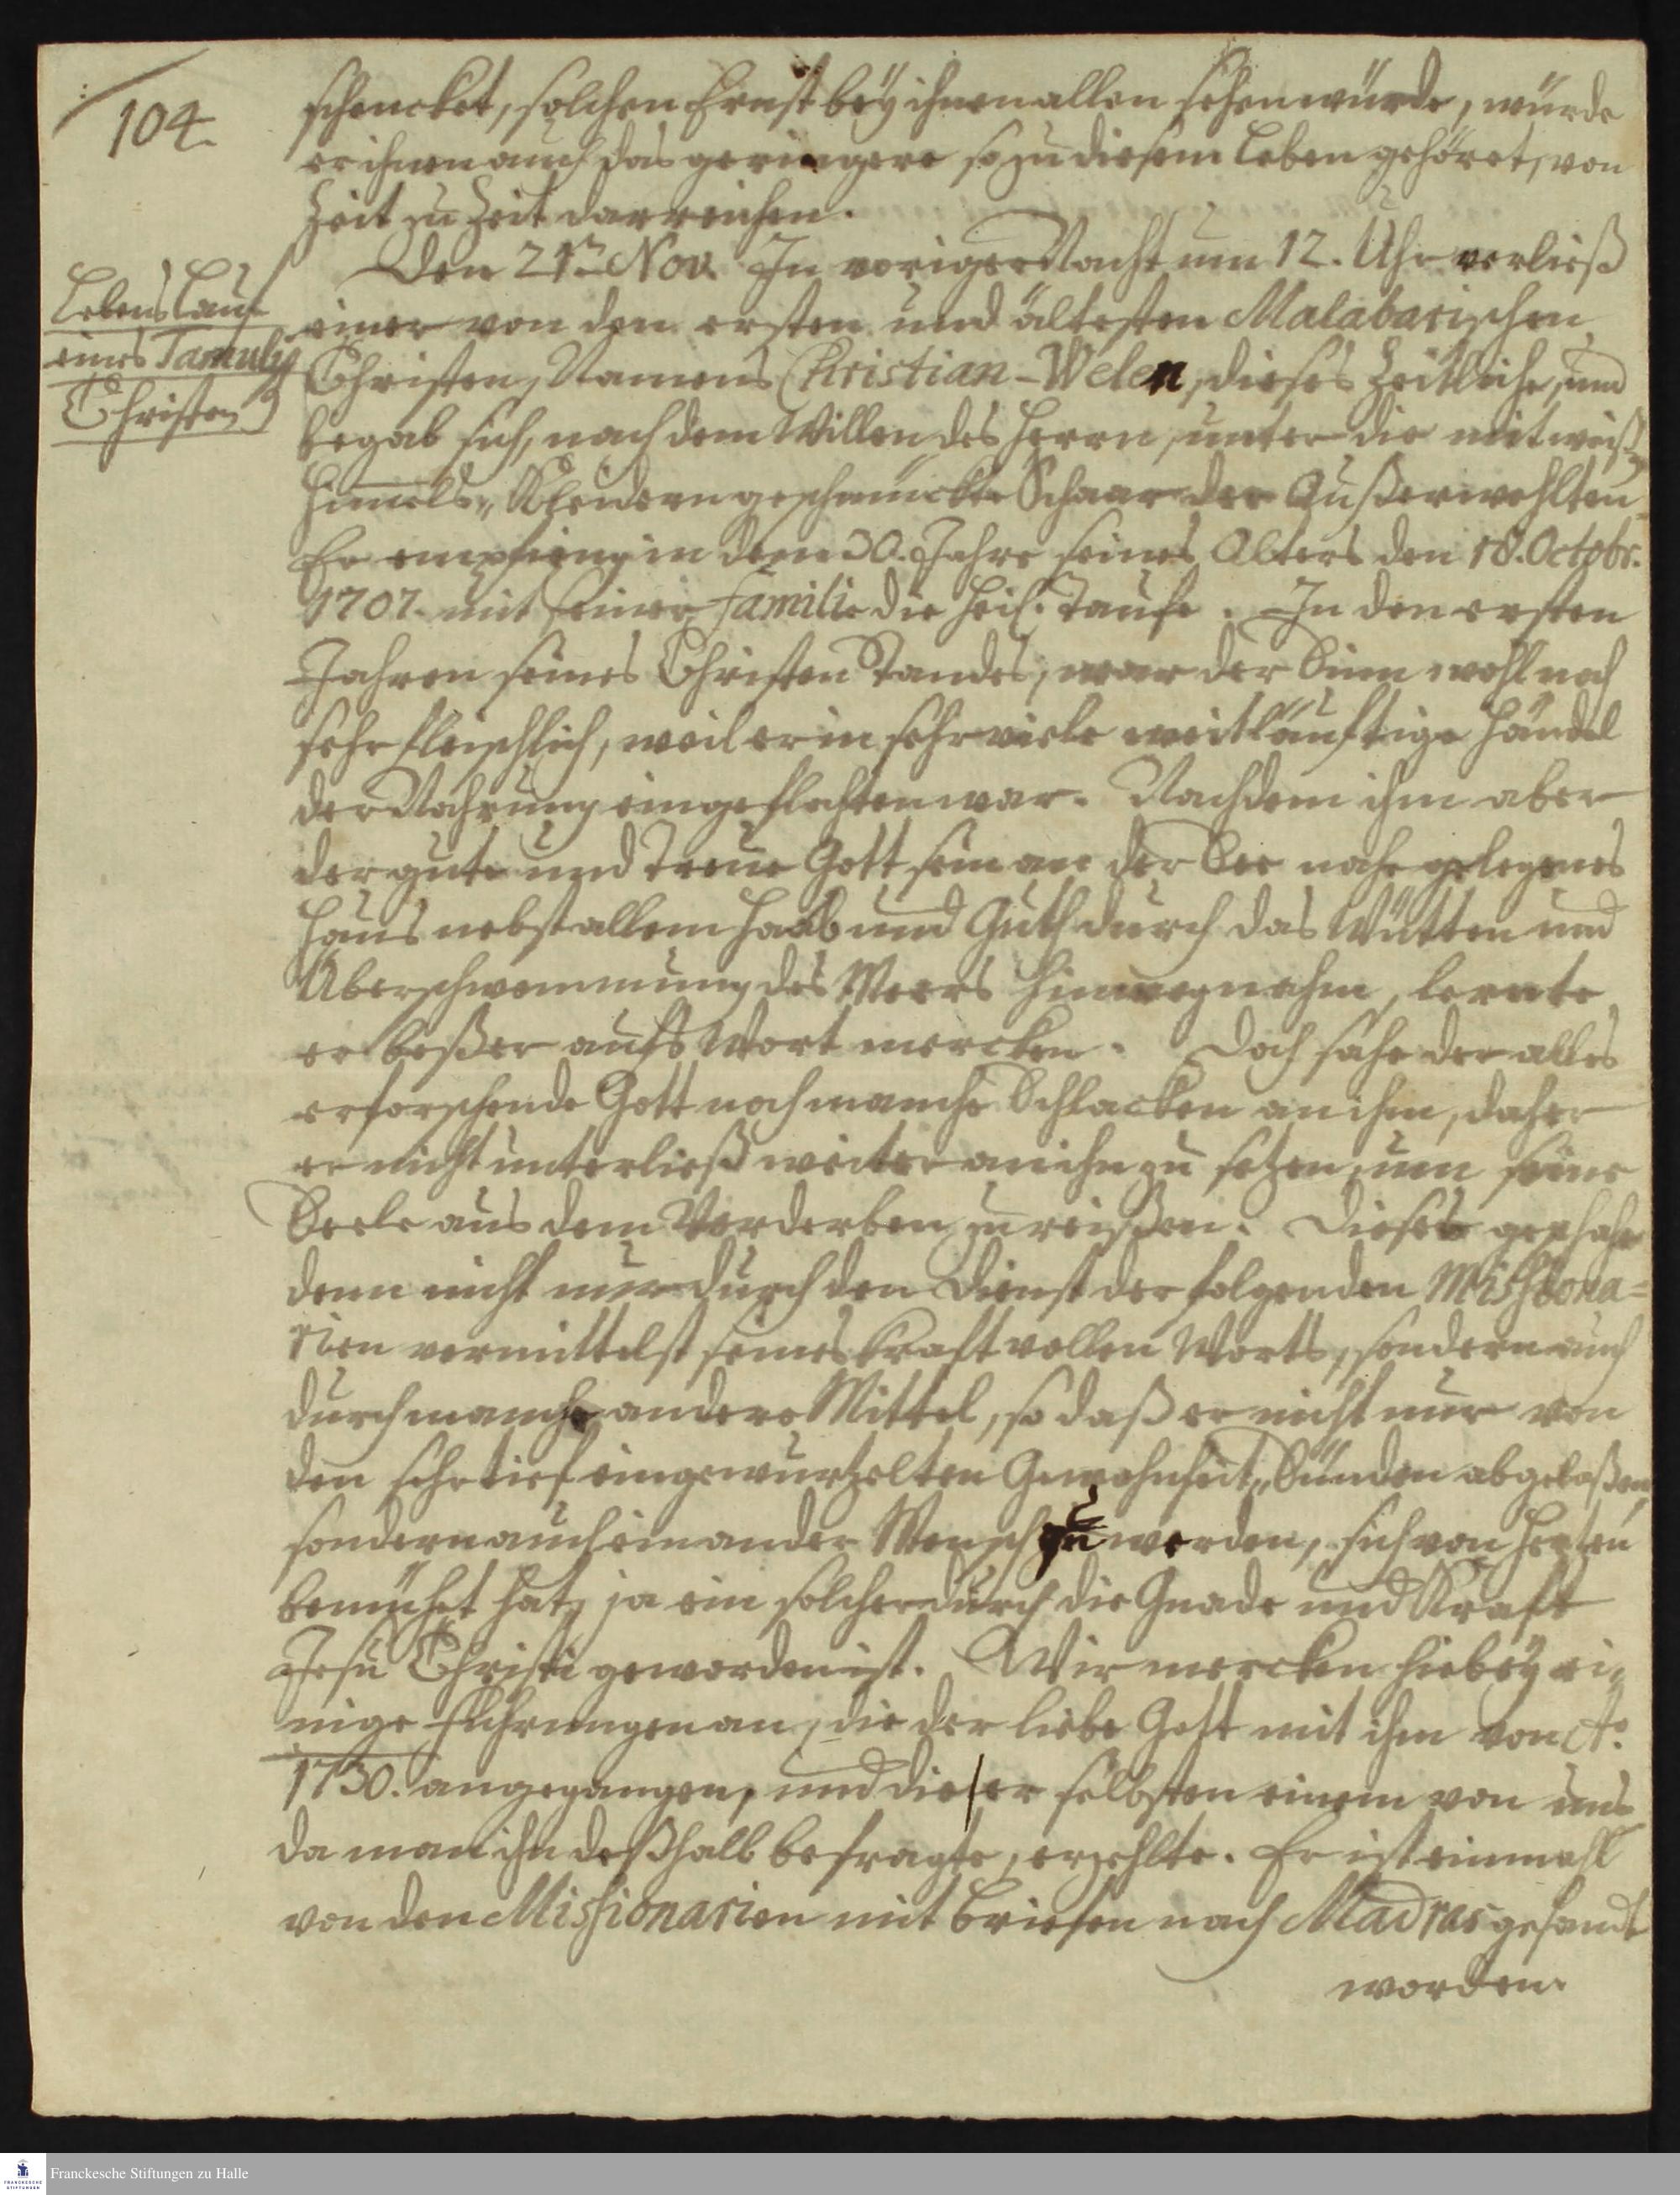 104.
schencket, solchen Ernst beÿ ihnen allen sehen würde, würde
er ihnen auch das geringere so zu diesem Leben gehöret, von
Zeit zu Zeit darreichen.
Den 21st Nov. In voriger Nacht um 12. Uhr verließ
einer von den ersten und ältesten Malabarischen
Christen, Namens Christian-Welen, dieses Zeitliche, und
begab sich, nach dem Willen des Herrn, unter die mit weiß
Himmels-Kleidern geschmückte Schaar der Außerwehlten.
Er empfieng in dem 30. Jahre seines Alters den 18. Octobr.
1707. mit seiner Familie die heil. Taufe. In den ersten
Jahren seines Christen Standes, war der Sinn wohl noch
sehr fleischlich, weil er in sehr viele weitläuftige Händel
der Nahrung eingeflochten war. Nachdem ihm aber
der gute und treue Gott sein an der See nahe gelegenes
Haus nebst allem Haab und Guth durch das Wütten und
Überschwemmung des Meers hinwegnahm, lernte
er beßer aufs Wort mercken. Doch sahe der alles
erforschende Gott noch manche Schlacken an ihm, daher
er nicht unterließ weiter an ihn zu setzen, um seine
Seele aus dem Verderben zu reißen. Dieses geschahe
denn nicht nur durch den Dienst der folgenden Missiona=
rien vermittelst seines kraftvollen Worts, sondern auch
durch manche andere Mittel, so daß er nicht nur von
den sehr tief eingewurtzelten Gewohnheit-Sünden abgelaßen,
sondern auch ein ander Mensch zu werden, sich von Hertzen
bemühet hat, ja ein solcher durch die Gnade und Krafft
Jesu Christi geworden ist. Wir mercken hiebeÿ ei-
nige Führungen an, die der liebe Gott mit ihm von Ao.
1730. angegangen, und die er selbsten einem von uns
da man ihn deßhalb befragte, erzehlte. Er ist einmahl
von den Missionarien mit Briefen nach Madras gesandt
worden.
Lebens Lauf
eines Tamulisch
Christen
Franckesche Stiftungen zu Halle
FRANCKESCHE STIFTUNGEN